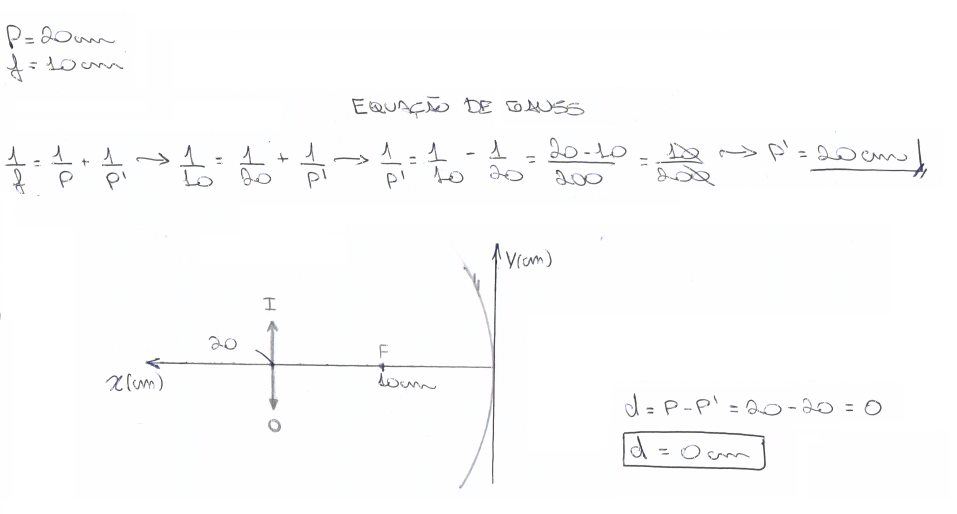 P = 20cm
f = 10cm
EQUAÇÃO DE GAUSS
1/f = 1/P + 1/P' → 1/10 = 1/20 + 1/P' → 1/P' = 1/10 - 1/20 = 20-10/200 = 10/200 → P' = 20cm
Y(cm)
I
20
F
x(cm)
10cm
O
d = P - P' = 20 - 20 = 0
d = 0cm